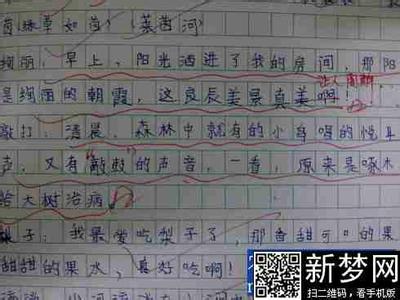 茵:绿草如茵!(莱茵河)
绚丽:早上,阳光洒进了我的房间,那阳
是绚丽的朝霞,这良辰美景真美啊!
敲打:清晨,森林中就有的小鸟唱的悦耳
声,又有"敲敲"的声音,一看,原来是啄木
给大树治病。
梨子:我最爱吃梨子了,那香甜可口的果
甜甜的果水,真好吃啊!
新梦网
扫二维码,看手机版